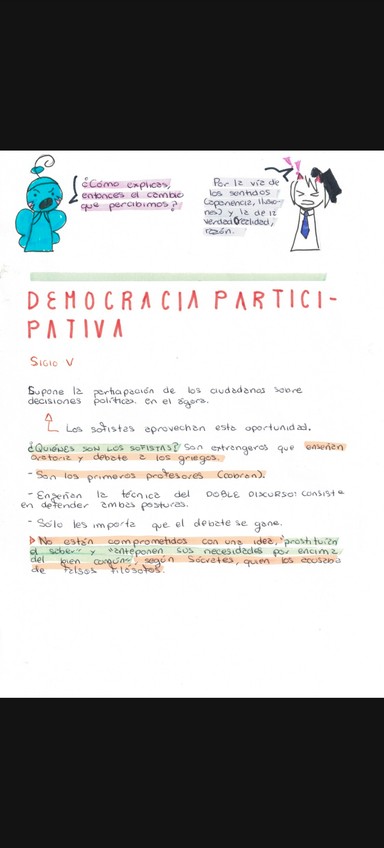 ¿Cómo explicas,
entonces el cambio
que percibimos?
Por la vía de
los sentidos
(apariencia, ilusio-
nes) y la de la
verdad O realidad,
razón.
DEMOCRACIA PARTICI-
PATIVA
Siglo V
Supone la participación de los ciudadanos sobre
decisiones políticas. en el ágora.
Los sofistas aprovechan esta oportunidad.
¿QUIÉNES SON LOS SOFISTAS? Son extrangeros que enseñan
oratoria y debate a los griegos.
- Son los primeros profesores (cobran).
- Enseñan la técnica del DOBLE DISCURSO: consiste
en defender ambas posturas.
- Sólo les importa que el debate se gane.
No están comprometidos con una idea, "prostituían
el saber" y "anteponen sus necesidades por encima
del bien común", según Sócrates, quien los acusaba
de falsos filósofos.